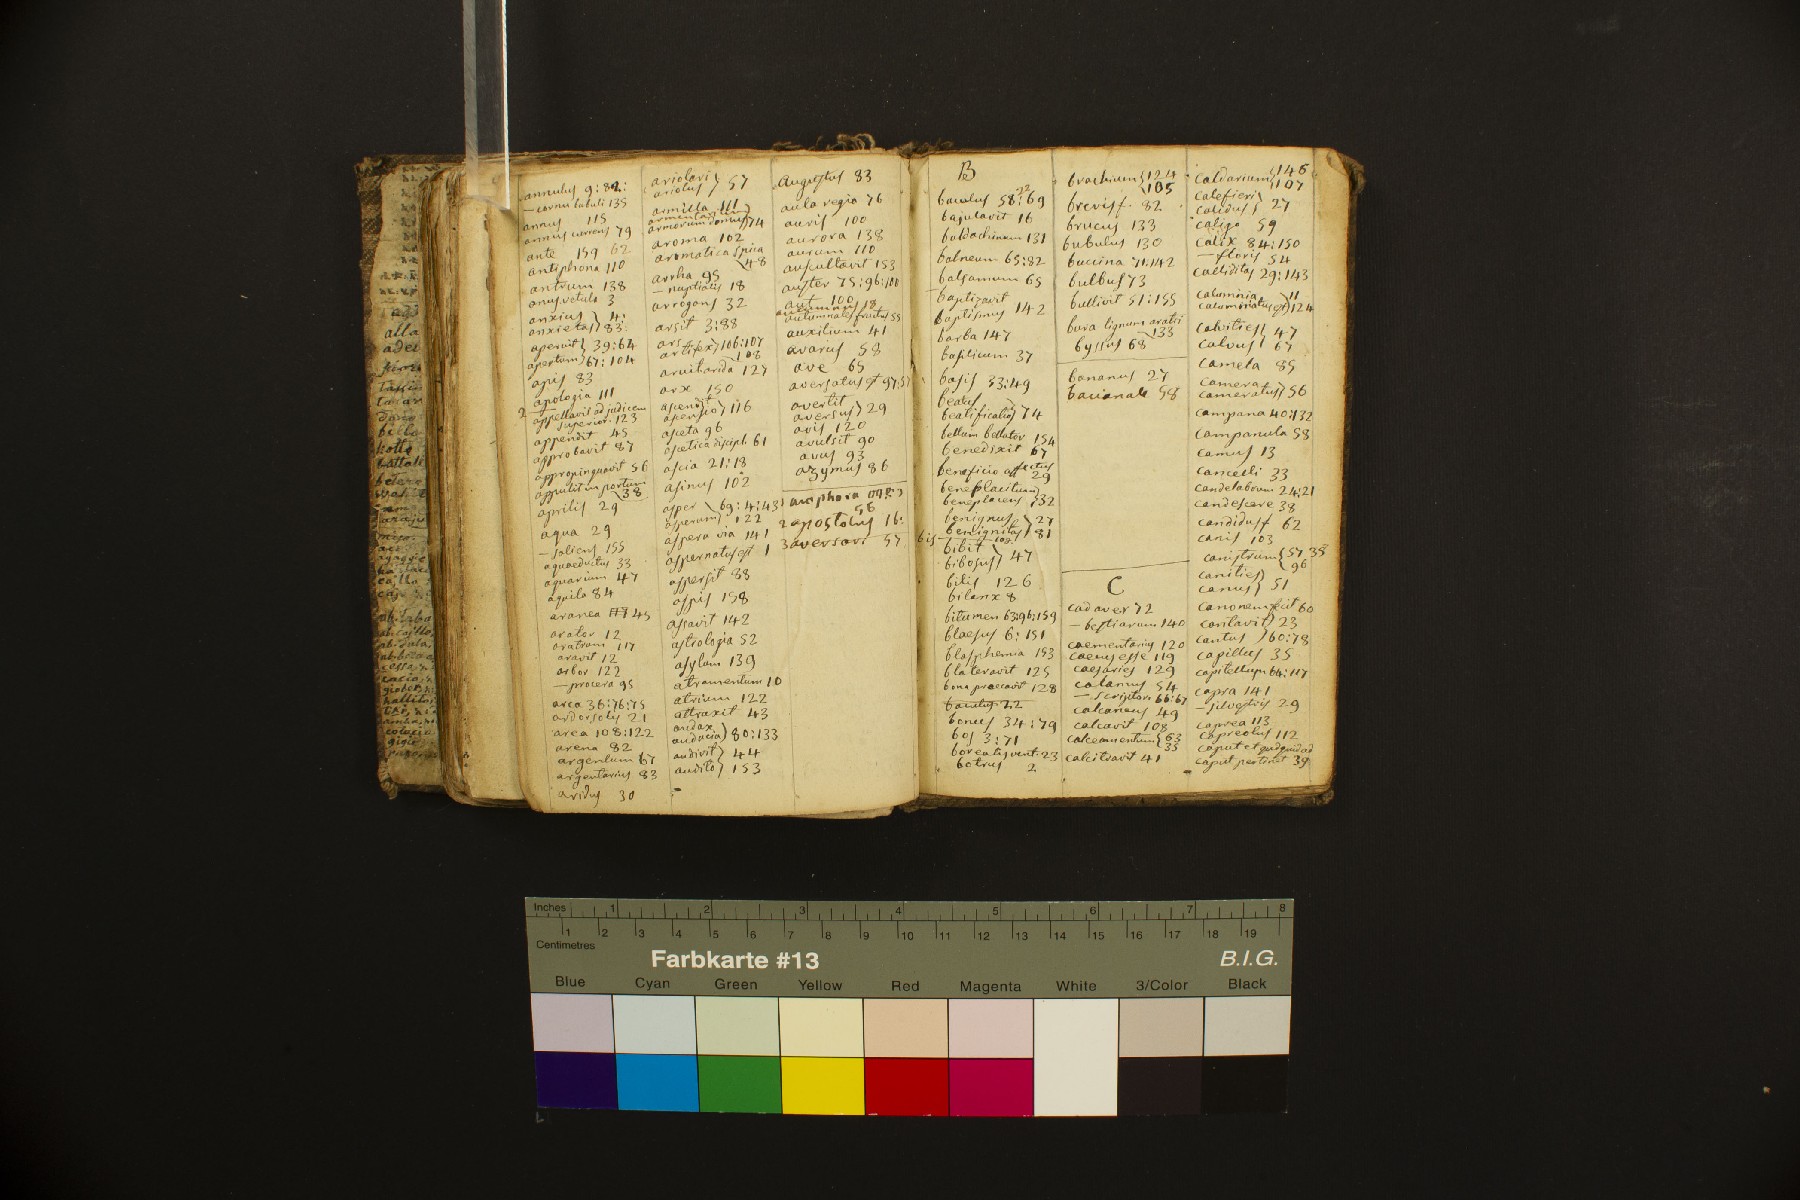 annulus 9:82:
— cornu tubuli 135
annus 115
annus currens 79
ante 159 62
antiphona 110
antrum 138
anus vetula 3
anxius } 4:
anxietas } 83:
aperuit } 39:64
apertum } 67:104
apis 83
apologia 111
2 appellavit ad judicem
superior. 123
appendit 45
approbavit 87
appropinquavit 56
appulit in portum
38
aprilis 29
aqua 29
— saliens 155
aquaeductus 33
aquarium 47
aquila 84
aranea 45
arator 12
aratrum 117
aravit 12
arbor 122
— procera 95
arca 36:76:75
ardor solis 21
area 108:122
arena 82
argentum 67
argentarius 83
aridus 30
ariolari } 57
ariolus }
armilla 111
armentarium }
armorum domus } 74
aroma 102
aromatica spica
48
arrha 95
— nuptialis 18
arrogans 32
arsit 3:88
ars } 106:107
artifex } 108
aruit arida 127
arx 150
ascendit } 116
ascensio }
asceta 96
ascetica discipl. 61
ascia 21:18
asinus 102
asper } 69:4:43
asperum } 122
aspera via 141
aspernatus est 1
aspersit 88
aspis 158
assavit 142
astrologia 52
asylum 139
atramentum 10
atrium 122
attraxit 43
audax }
audacia } 80:133
audivit } 44
auditus } 153
Augustus 83
aula regia 76
auris 100
aurora 138
aurum 110
auscultavit 153
auster 75:96:100
aut 100
autumnus 18
autumnales fructus 55
auxilium 41
avarus 58
ave 65
aversatus est 97:57
avertit }
aversus } 29
avis 120
avulsit 90
avus 93
azymus 86
1 amphora
56
2 apostolus 16:
3 aversari 57
B
22
baculus 58:69
bajulavit 16
baldachinum 131
balneum 65:82
balsamum 65
baptizavit
baptismus 142
barba 147
basilicum 37
basis 33:49
beatus }
beatificatio } 74
bellum bellator 154
benedixit 67
beneficio affectus
29
beneplacitum }
beneplacens } 132
benignus } 27
benignitas } 81
bis 102
bibit }
bibosus } 47
bilis 126
bilanx 8
bitumen 63:96:159
blaesus 6:151
blasphemia 153
blateravit 125
bona praecavit 128
baculus 22
bonus 34:79
bos 3:71
borealis vent. 23
botrus 2
brachium } 124
105
brevis f. 82
brucus 133
bubulus 130
buccina 71:142
bulbus 73
bullivit 51:155
bura lignum aratri
133
byssus 68
bananus 27
bacanale 58
C
cadaver 72
— bestiarum 140
caementarius 120
caecus esse 119
caesaries 129
calamus 54
— scriptor. 66:67
calcaneus 49
calcavit 108
calceamentum } 63
35
calcitravit 41
caldarium } 146
107
calefieri }
calidus } 27
caligo 59
calix 84:150
— floris 54
calliditas 29:143
calumnia } 11
calumniatus est } 124
calvities } 47
calvus } 67
camela 85
camera }
cameratus } 56
campana 40:132
campanula 58
camus 13
cancelli 33
candelabrum 24:21
candescere 38
candidus f. 62
canis 103
canistrum } 57 38
96
canities }
canus } 51
canonem fecit 60
cantavit } 23
cantus } 60:78
capillus 35
capitellum 64:117
capra 141
— silvestris 29
caprea 113
capreolus 112
caput et quidquid ad
caput pertinet 39
Inches 1 2 3 4 5 6 7 8
1 2 3 4 5 6 7 8 9 10 11 12 13 14 15 16 17 18 19
Centimetres
Farbkarte #13
B.I.G.
Blue Cyan Green Yellow Red Magenta White 3/Color Black